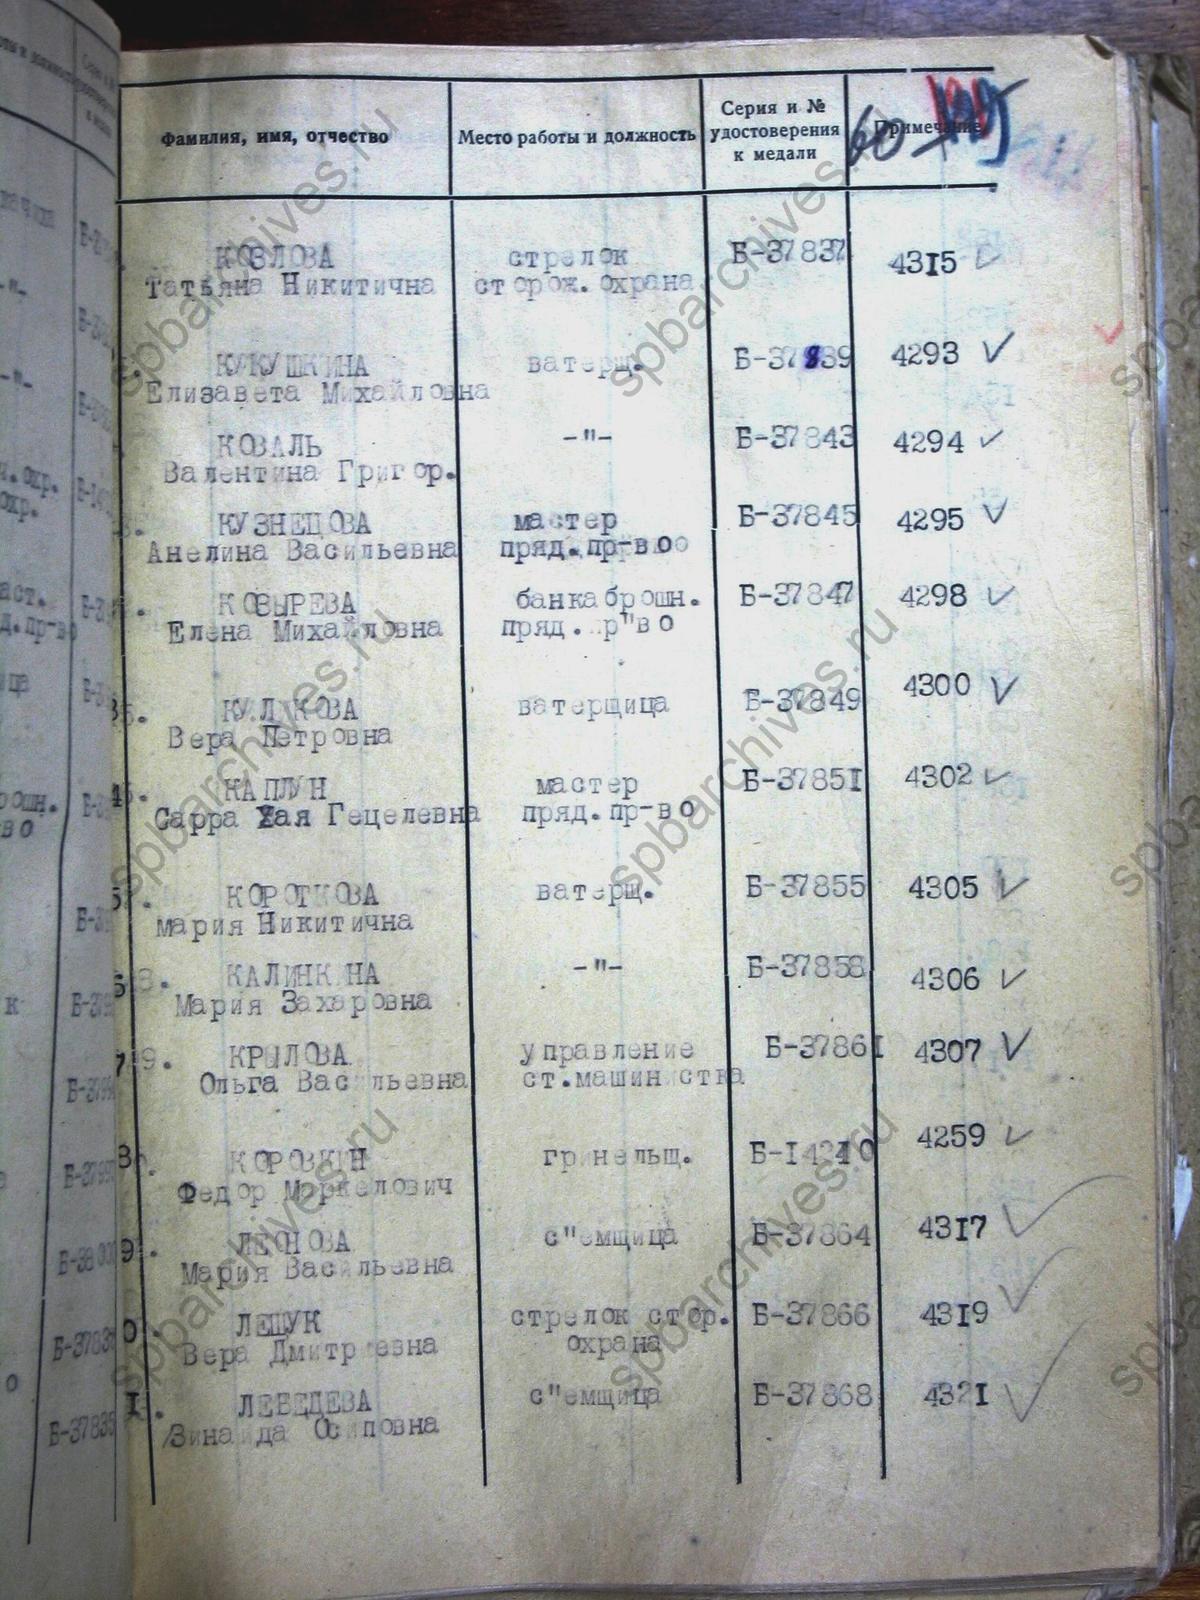 Фамилия, имя, отчество Место работы и должность Серия и № удостоверения к медали Примечание
60
КОЗЛОВА стрелок Б-37837 4315
Татьяна Никитична сторож. охрана
КУКУШКИНА ватерщ. Б-37839 4293
Елизавета Михайловна
КОВАЛЬ -"- Б-37843 4294
Валентина Григор.
КУЗНЕЦОВА мастер Б-37845 4295
Анелина Васильевна пряд.пр-во
КОЗЫРЕВА банкаброшн. Б-37847 4298
Елена Михайловна пряд.пр"во
КУЛИКОВА ватерщица Б-37849 4300
Вера Петровна
КАПЛУН мастер Б-37851 4302
Сарра Хая Гецелевна пряд.пр-во
КОРОТКОВА ватерщ. Б-37855 4305
мария Никитична
КАЛИНКИНА -"- Б-37858 4306
Мария Захаровна
КРЫЛОВА управление Б-37861 4307
Ольга Васильевна ст.машинистка
КОРОЗКИН гринельщ. Б-14210 4259
Федор Маркелович
ЛЕОНОВА с"емщица Б-37864 4317
Мария Васильевна
ЛЕЩУК стрелок стор. Б-37866 4319
Вера Дмитриевна охрана
ЛЕБЕДЕВА с"емщица Б-37868 4321
Зинаида Осиповна
spbarchives.ru